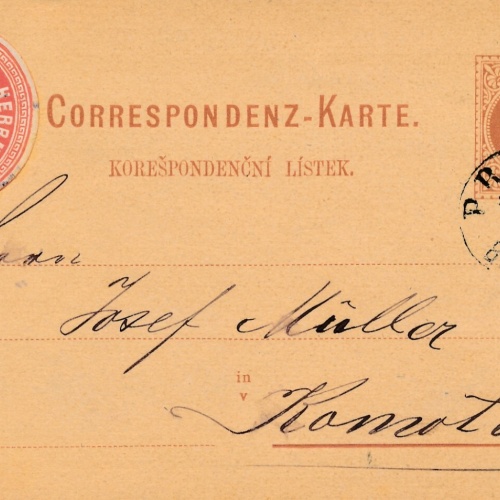 CORRESPONDENZ-KARTE.
KOREŠPONDENČNÍ LÍSTEK.
Josef Müller
in
v